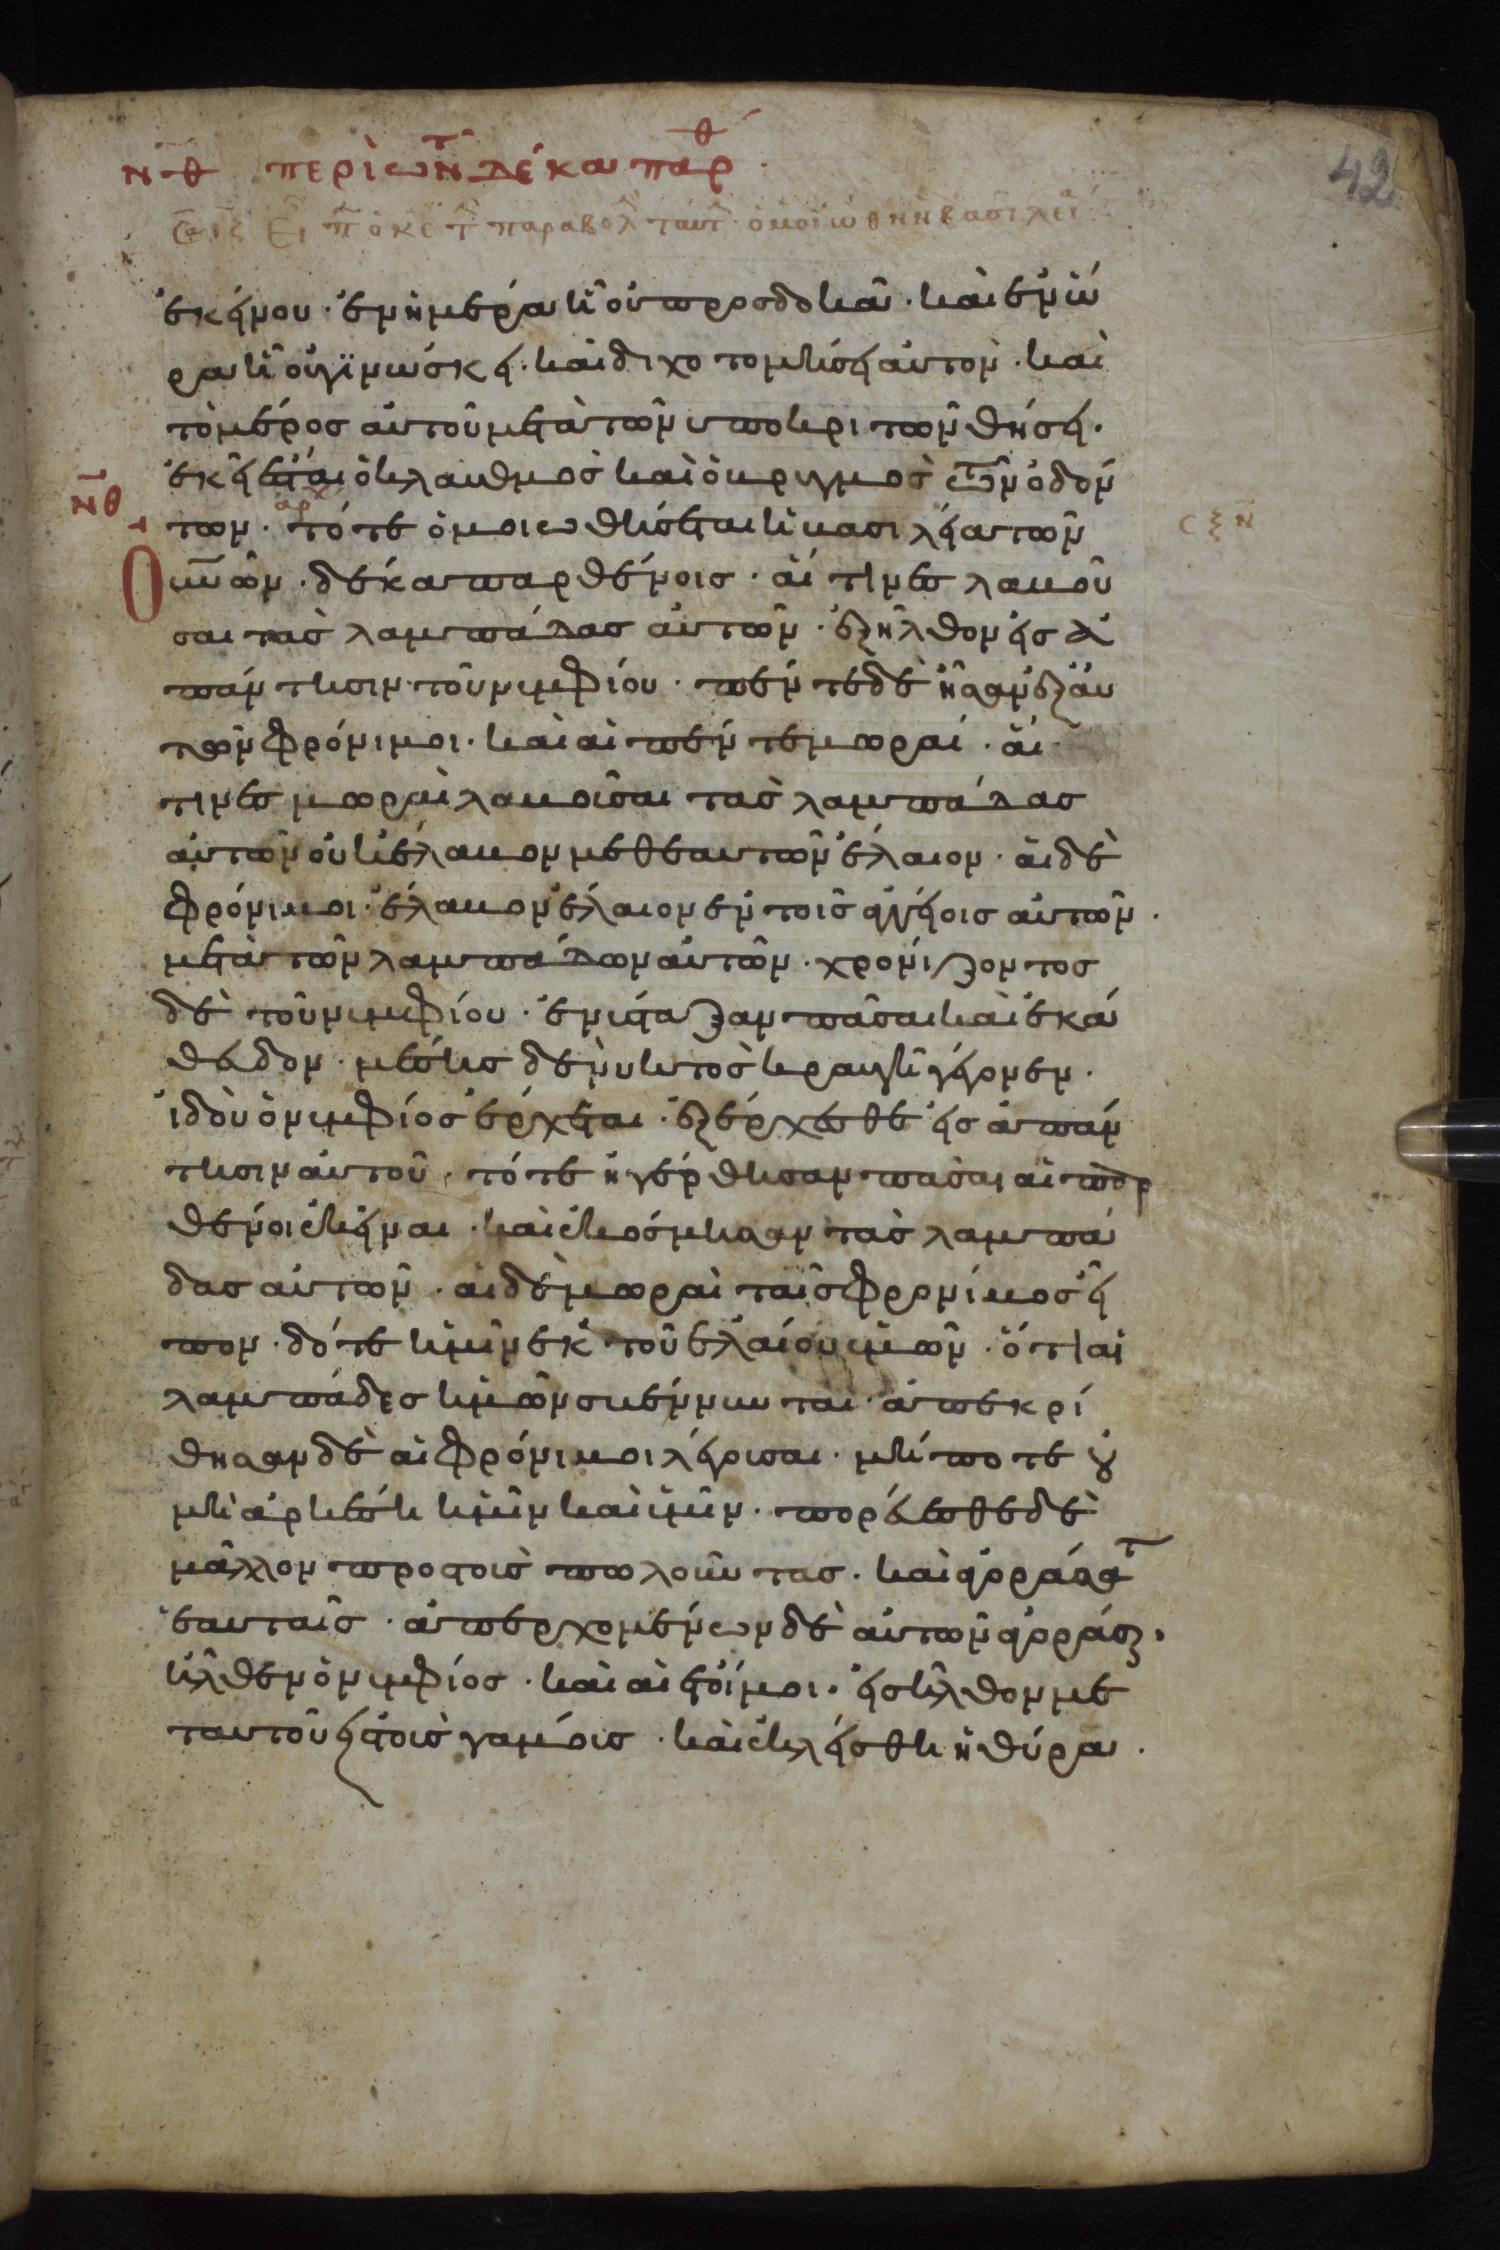 42
νθ περὶ τῶν δέκα παρθ
εἶπ ὁ κς τ παραβολ ταύτ ὁμοιώθη ἡ βασιλεί
ἐκείνου · ἐν ἡμέρα ἧ οὐ προσδοκᾶ · καὶ ἐν ὥ
ρα ἧ οὐ γινώσκει · καὶ διχοτομήσει αὐτὸν · καὶ
τὸ μέρος αὐτοῦ μετὰ τῶν υποκριτῶν θήσει ·
ἐκεῖ ἔσται ὁ κλαυθμὸς καὶ ὁ βρυγμὸς τῶν ὀδόν
νθ
των · αρχ τότε ὁμοιωθήσεται ἡ βασιλεία τῶν
ϲξη
Ο
οὐνῶν · δέκα παρθένοις · αἵτινες λαβοῦ
σαι τὰς λαμπάδας αὐτῶν · ἐξῆλθον εἰς ἀ
πάντησιν τοῦ νυμφίου · πέντε δὲ ἦσαν ἐξ αυ
τῶν φρόνιμοι · καὶ αἱ πέντε μωραί · αἵ
τινες μωραὶ λαβοῦσαι τὰς λαμπάδας
αὐτῶν οὐκ ἔλαβον μεθεαυτῶν ἔλαιον · αἱ δὲ
φρόνιμοι · ἔλαβον ἔλαιον ἐν τοῖς ἀγγείοις αὐτῶν ·
μετὰ τῶν λαμπάδων αὐτῶν · χρονίζοντος
δὲ τοῦ νυμφίου · ἐνύσταξαν πᾶσαι καὶ ἐκά
θευδον · μέσης δὲ νυκτὸς κραυγὴ γέγονεν ·
ἰδοὺ ὁ νυμφίος ἔρχεται · ἐξέρχεσθε εἰς ἀπάν
τησιν αὐτοῦ · τότε ἠγέρθησαν πᾶσαι αἱ παρ
θένοι ἐκεῖναι · καὶ ἐκόσμησαν τὰς λαμπά
δας αὐτῶν · αἱ δὲ μωραὶ ταῖς φρονίμοις εἶ
πον · δότε ἡμῖν ἐκ τοῦ ἐλαίου ὑμῶν · ὅτι αἱ
λαμπάδες ἡμῶν σβέννυνται · ἀπεκρί
θησαν δὲ αἱ φρόνιμοι λέγουσαι · μήποτε οὐ
μὴ ἀρκέση ἡμῖν καὶ ὑμῖν · πορεύεσθε δὲ
μᾶλλον προς τοὺς πωλοῦντας · καὶ ἀγοράσατ
ἑαυταῖς · ἀπερχομένων δὲ αὐτῶν ἀγοράσ ·
ἦλθεν ὁ νυμφίος · καὶ αἱ ἕτοιμοι · εἰσῆλθον με
ταυτοῦ εἰς τοὺς γάμους · καὶ ἐκλείσθη ἡ θύρα ·